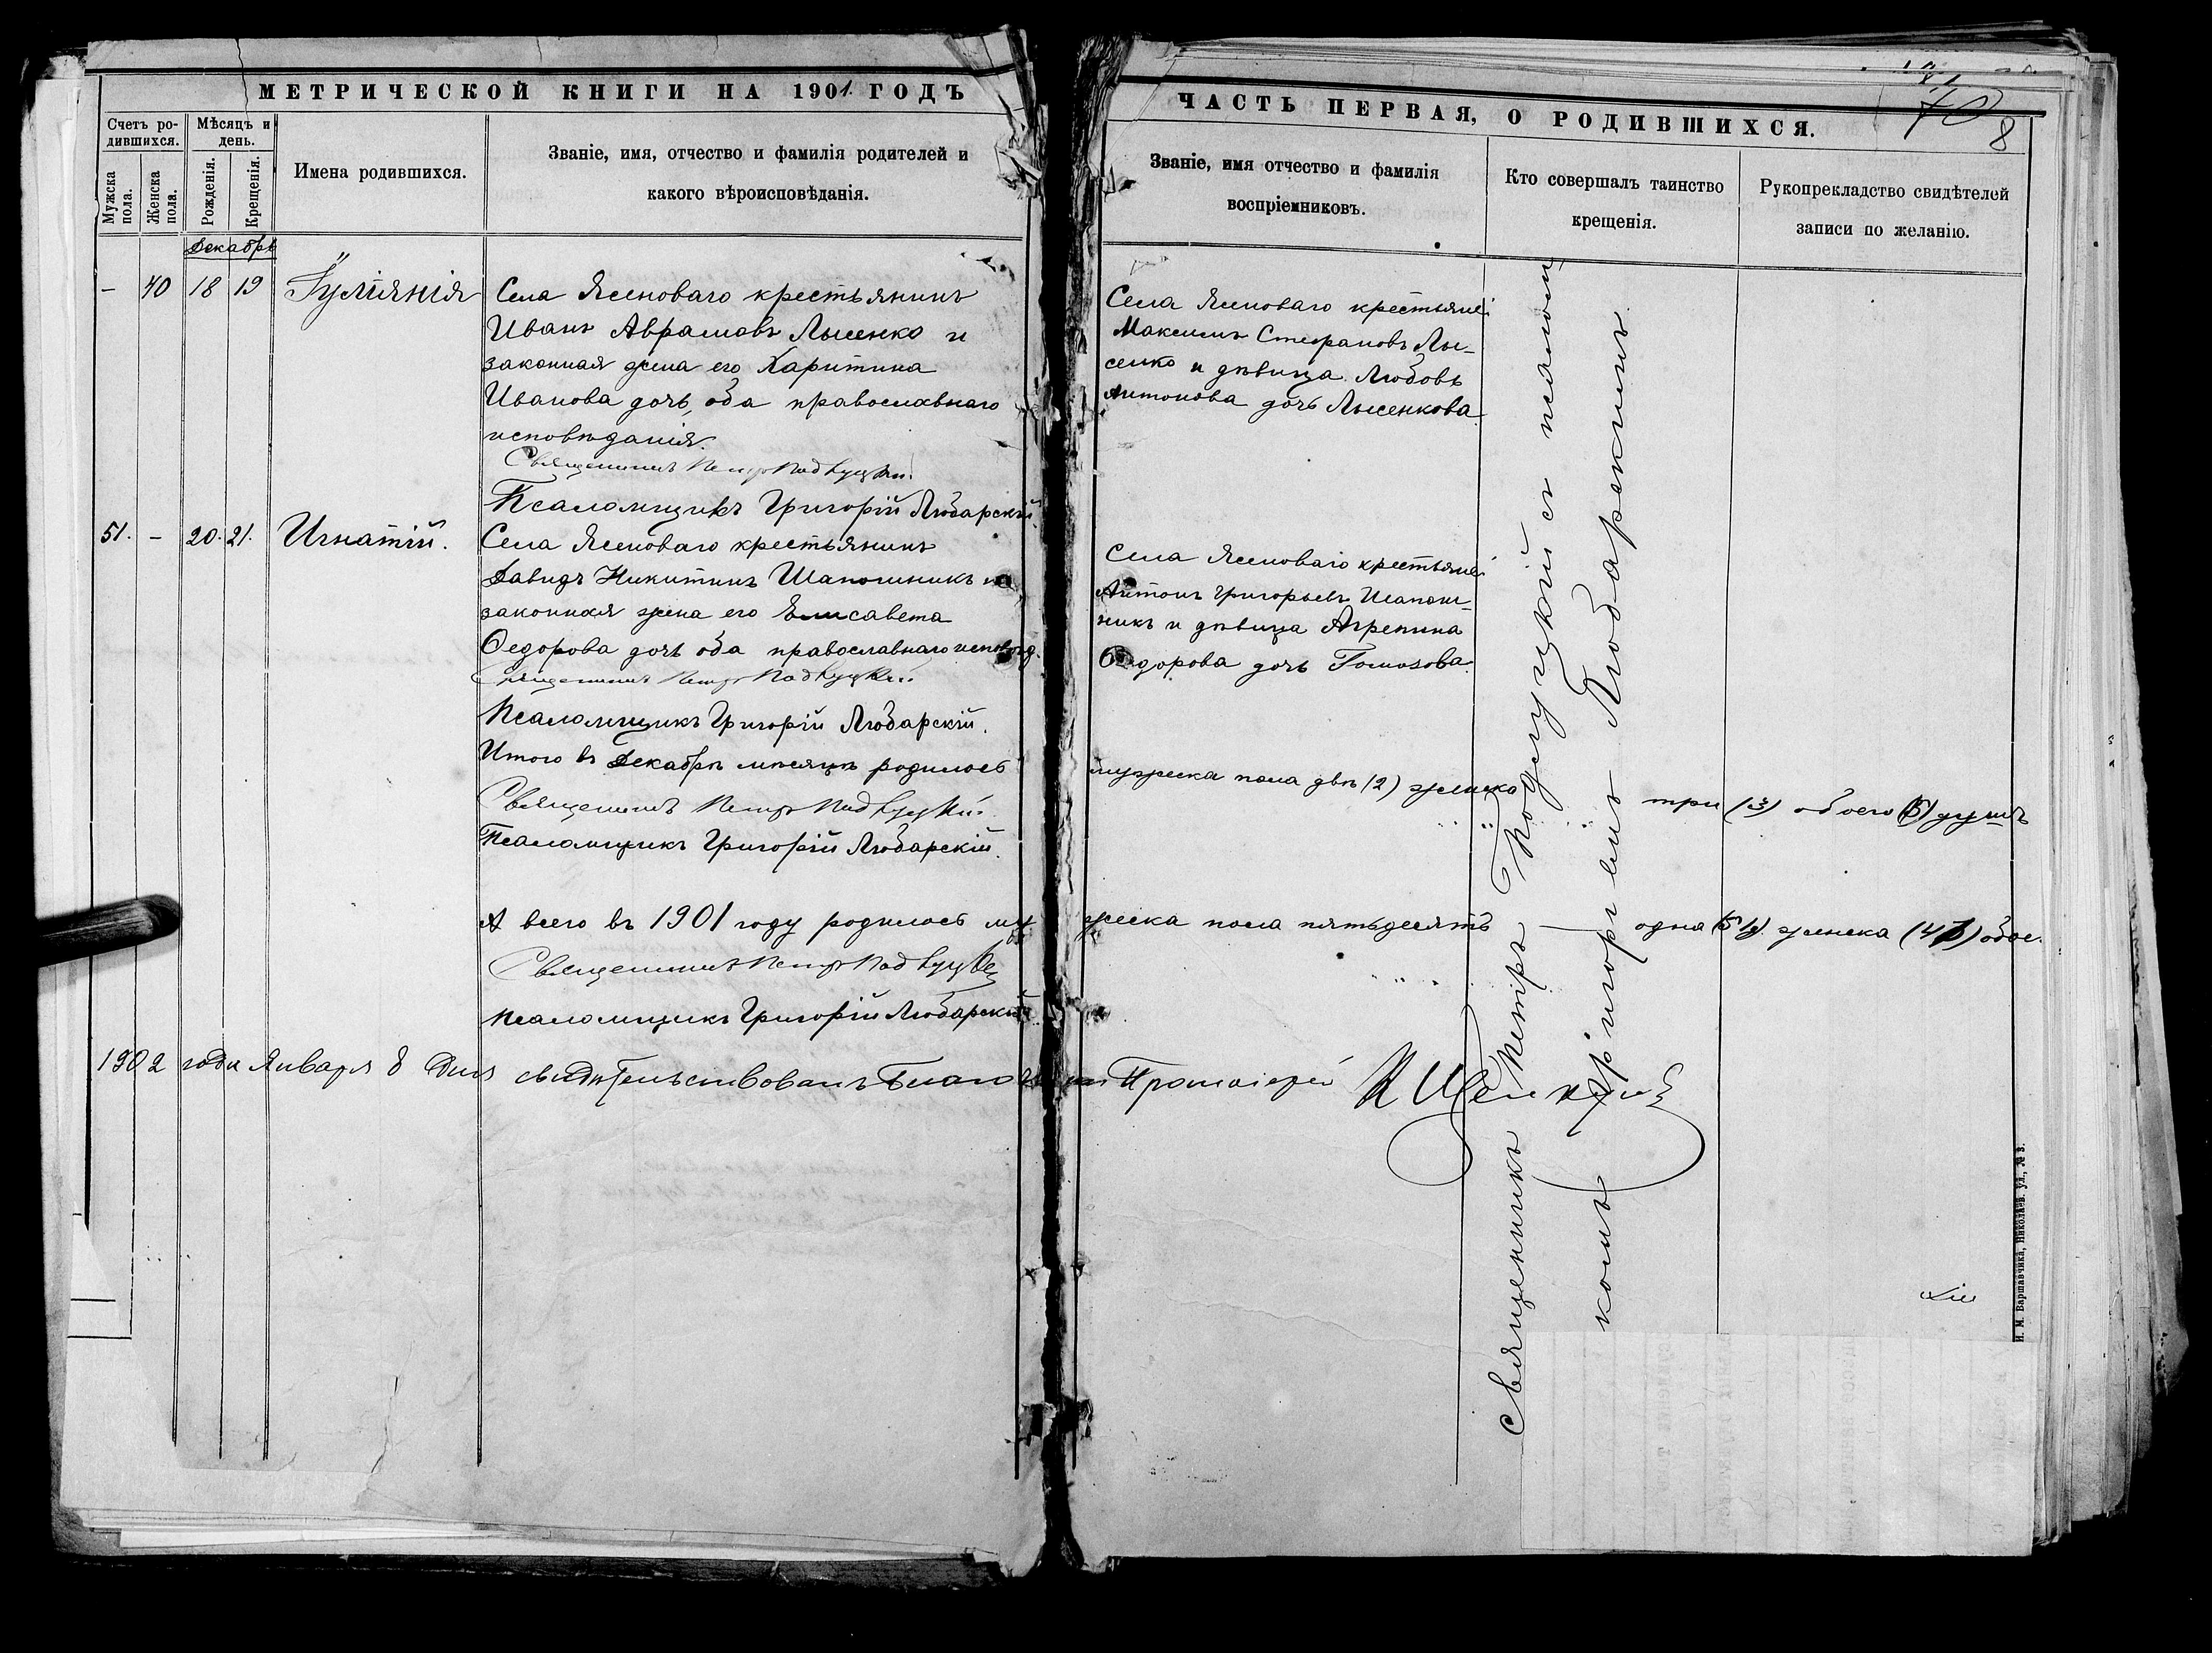 МЕТРИЧЕСКОЙ КНИГИ НА 1901 ГОДЪ
Счетъ ро-
дившихся.
Мужска
пола.
Женска
пола.
Мѣсяцъ и
день.
Рожденія.
Крещенія.
Имена родившихся.
Званіе, имя, отчество и фамилія родителей и
какого вѣроисповѣданія.
Декабрь
– 40 18 19 Іуліянія
Села Ясеноваго крестьянинъ
Иванъ Аврамовъ Лысенко и
законная жена его Харитина
Иванова дочь, оба православнаго
исповѣданія.
Священникъ Петръ
Псаломщикъ Григорій Любарскій
51. – 20. 21. Игнатій.
Села Ясеноваго крестьянинъ
Давидъ Никитинъ Шапошникъ и
законная жена его Елисавета
Ѳедорова дочь оба православнаго исповѣд.
Священникъ Петръ
Псаломщикъ Григорій Любарскій.
Итого въ Декабрѣ мѣсяцѣ родилось
Священникъ Петръ
Псаломщикъ Григорій Любарскій.
А всего въ 1901 году родилось му
Священникъ Петръ
Псаломщикъ Григорій Любарскій
1902 года Января 8 дня свидѣтельствовалъ
ЧАСТЬ ПЕРВАЯ, О РОДИВШИХСЯ.
70
8
Званіе, имя отчество и фамилія
воспріемниковъ.
Кто совершалъ таинство
крещенія.
Рукоприкладство свидѣтелей
записи по желанію.
Села Ясеноваго крестьяне:
Максимъ Стефановъ Лы-
сенко и дѣвица Любовь
Антонова дочь Лысенкова.
Села Ясеноваго крестьяне:
Антонъ Григорьевъ Шапош-
никъ и дѣвица Агрепина
Ѳедорова дочь Гомозова.
мужеска пола двѣ (2) женска три (3) обоего (5) душъ
жеска пола пятьдесятъ одна (51) женска (40) обое.
Протоіерей
Священникъ Петръ съ псаломщи
комъ Григоріемъ Любарскимъ
И. М. Варшавчика, Николаев. ул., № 3.